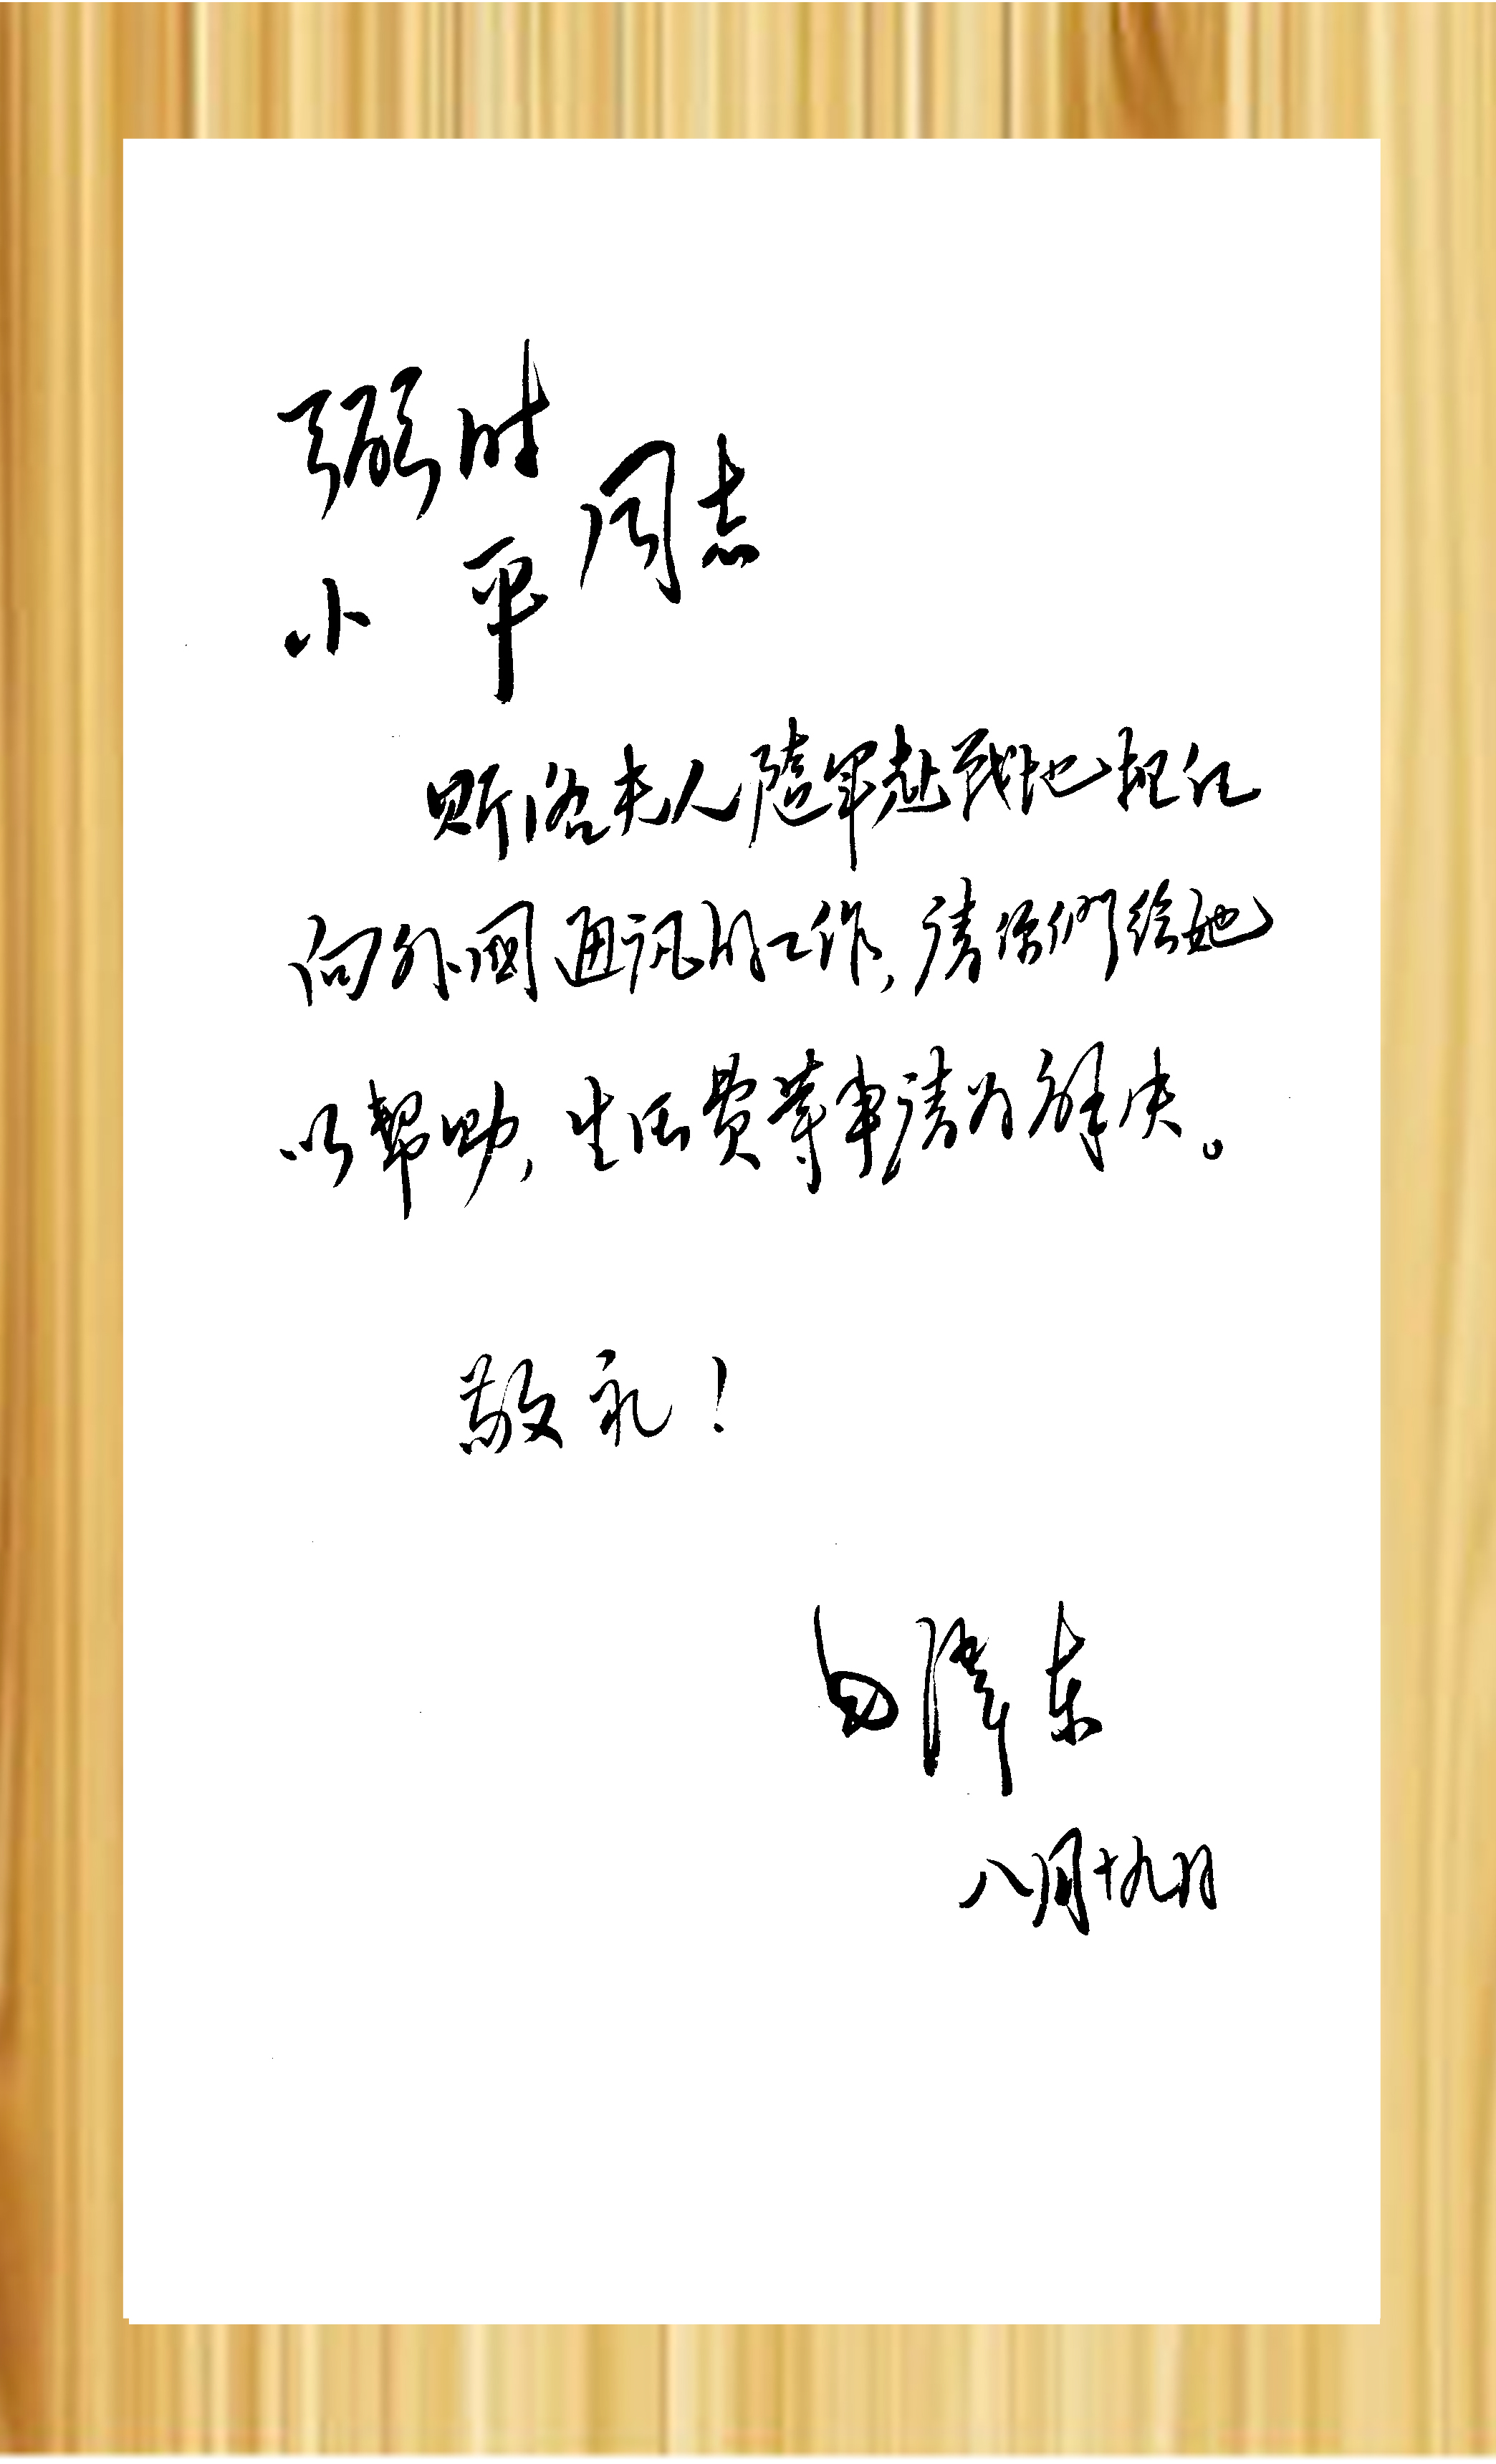 弼时
小平 同志
斯洛夫人隨军赴战地担任
向外国通讯的工作,请你们给她
以帮助,生活费等事请为解决。
敬礼!
毛泽东
八月十九日